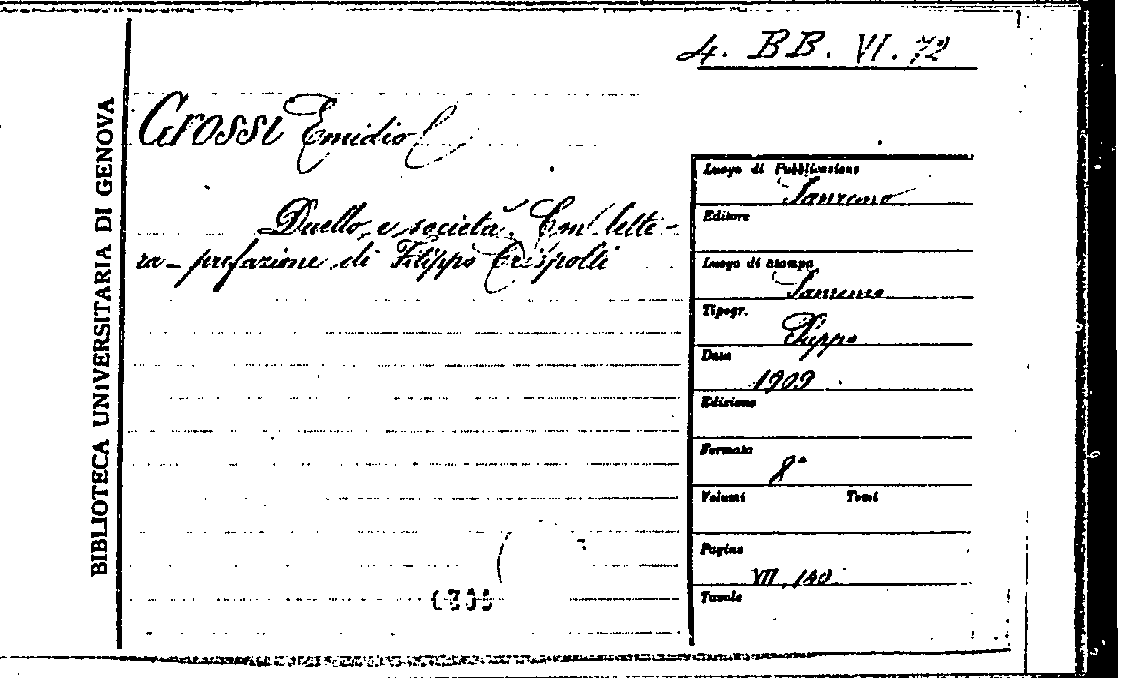 4. BB. VI. 72
BIBLIOTECA UNIVERSITARIA DI GENOVA
Grossi Emidio
Duello e società. Con lette-
ra-prefazione di Filippo Crispolti
Luogo di Pubblicazione
Sanremo
Editore
Luogo di stampa
Sanremo
Tipogr.
Data
1909
Edizione
Formato
8°
Volumi Tomi
Pagine
VII, 140
Tavole